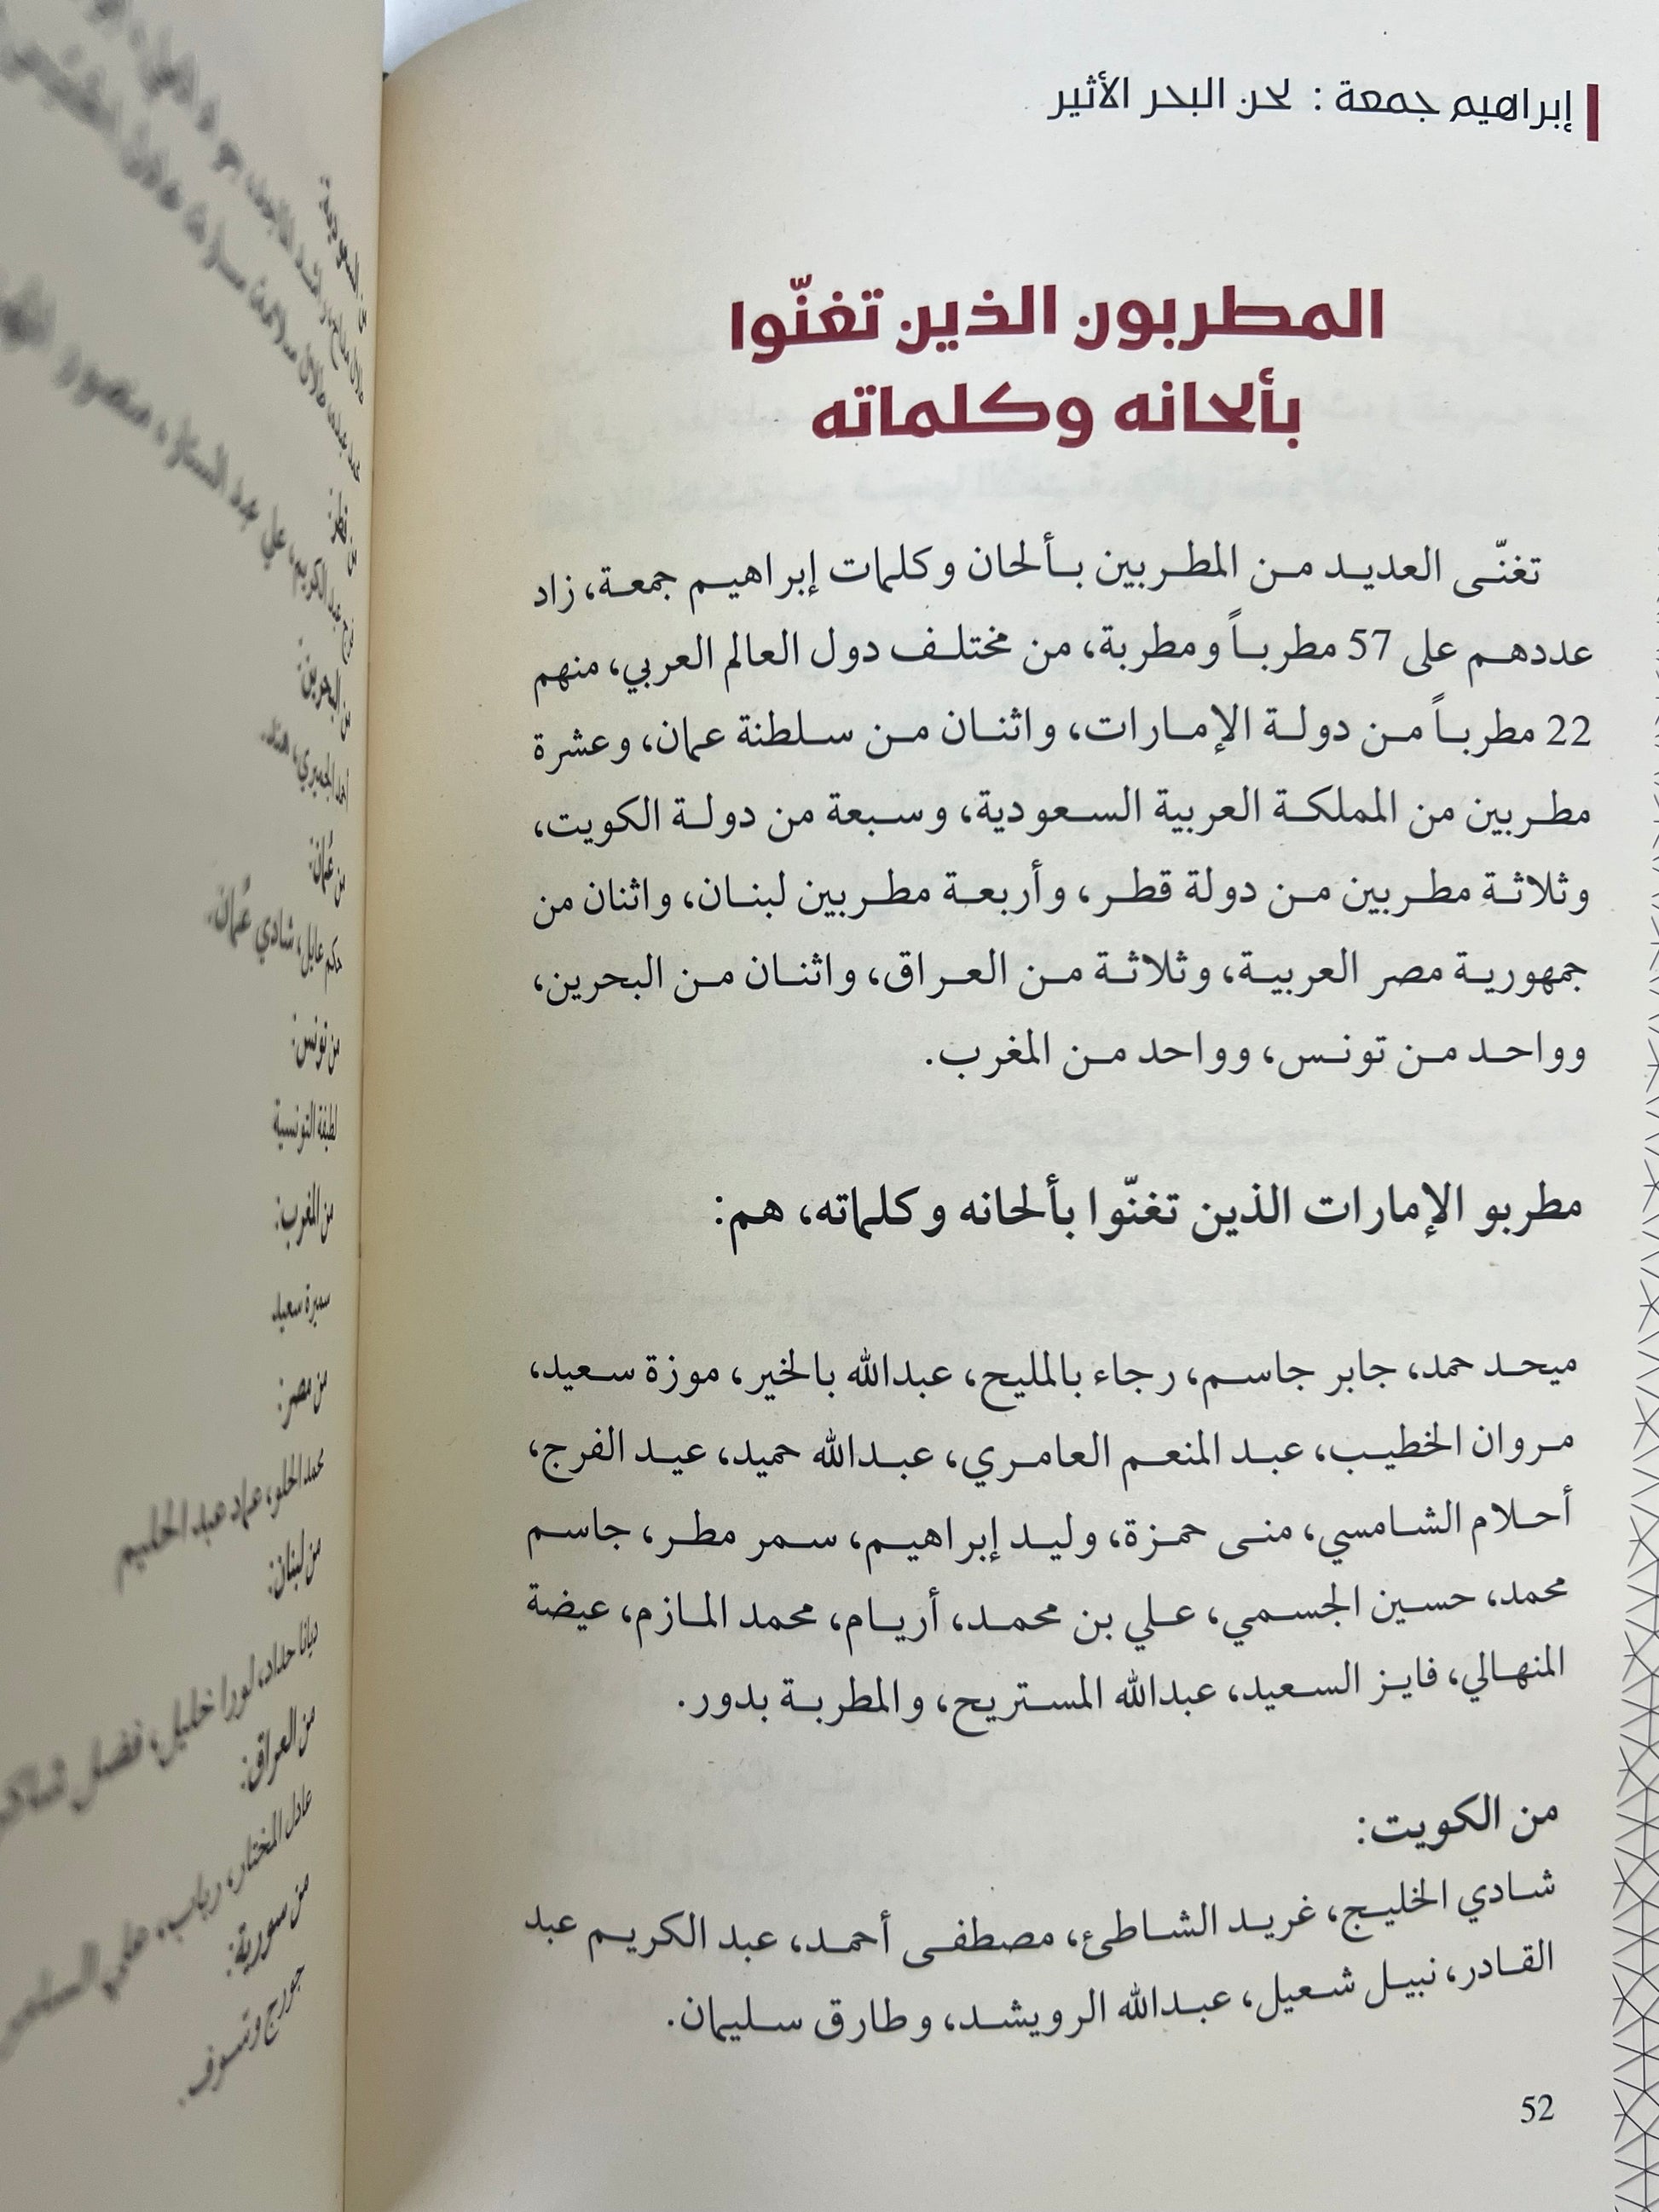 إبراهيم جمعة : لحن البحر الأثير
المطربون الذين تغنّوا
بألحانه وكلماته
تغنّى العديد من المطربين بألحان وكلمات إبراهيم جمعة، زاد
عددهم على 57 مطرباً ومطربة، من مختلف دول العالم العربي، منهم
22 مطرباً من دولة الإمارات، واثنان من سلطنة عمان، وعشرة
مطربين من المملكة العربية السعودية، وسبعة من دولة الكويت،
وثلاثة مطربين من دولة قطر، وأربعة مطربين لبنان، واثنان من
جمهورية مصر العربية، وثلاثة من العراق، واثنان من البحرين،
وواحد من تونس، وواحد من المغرب.
مطربو الإمارات الذين تغنّوا بألحانه وكلماته، هم:
ميحد حمد، جابر جاسم، رجاء بالمليح، عبدالله بالخير، موزة سعيد،
مروان الخطيب، عبد المنعم العامري، عبدالله حميد، عيد الفرج،
أحلام الشامسي، منى حمزة، وليد إبراهيم، سمر مطر، جاسم
محمد، حسين الجسمي، علي بن محمد، أريام، محمد المازم، عيضة
المنهالي، فايز السعيد، عبدالله المستريح، والمطربة بدور.
من الكويت:
شادي الخليج، غريد الشاطئ، مصطفى أحمد، عبد الكريم عبد
القادر، نبيل شعيل، عبدالله الرويشد، وطارق سليمان.
52
السعودية:
قطر:
عبد الكريم، علي عبد الستار، منصور
البحرين:
أحمد الجميري، هند.
من عُمان:
حكم عايل، شادي عُمان.
من تونس:
لطيفة التونسية
من المغرب:
سميرة سعيد
من مصر:
محمد الحلو، عماد عبد الحليم
من لبنان:
ديانا حداد، لورا خليل، فضل شاكر
من العراق:
عادل المختار، رباب، علي
من سورية:
جورج وسوف.